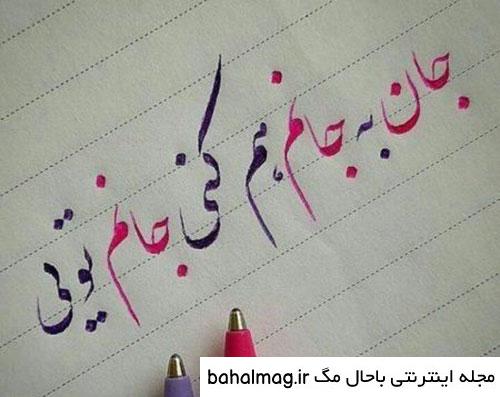 جان به جانم هم کنی جانم تویی
مجله اینترنتی باحال مگ bahalmag.ir